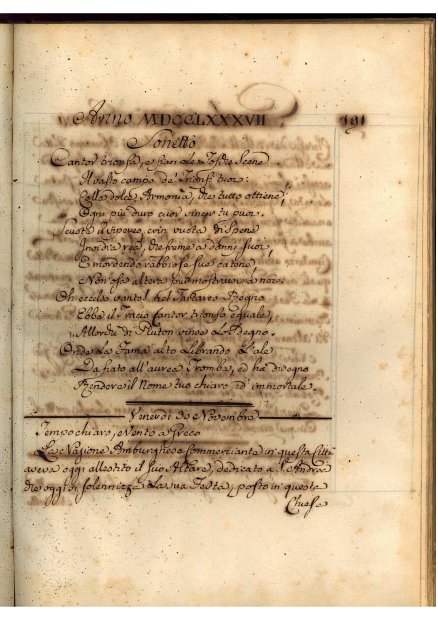 Anno MDCCLXXXVII 191
Sonetto
Cantor trionfa, e sian le nostre Scene
Il vasto campo de' Trionfi tuoi:
Colla dolce Armonia, che tutto ottiene,
Ogni più duro cuor vincer tu puoi.
Scuota il vipereo crin vuota di Spene
Invidia rea, che freme a danni suoi,
E mordendo rabbiosa sue catene,
Non osa altera più mostrarsi a noi.
Un eccelso vanto! nel Tartareo Regno
Ebbe il Tracio Cantor trionfo eguale,
Allorchè di Pluton vinse lo Sdegno.
Onde la Fama alto librando l'ale
Da fiato all'aurea Tromba, ed ha disegno
Rendere il Nome tuo chiaro, ed immortale.
Venerdì 30 Novembre
Tempo chiaro, e Vento a Greco
La Nazione Amburghese commerciante in questa Città
aveva oggi allestito il suo Altare, dedicato a S. Andrea
che oggi si solennizza la sua Festa, posto in queste
Chiese